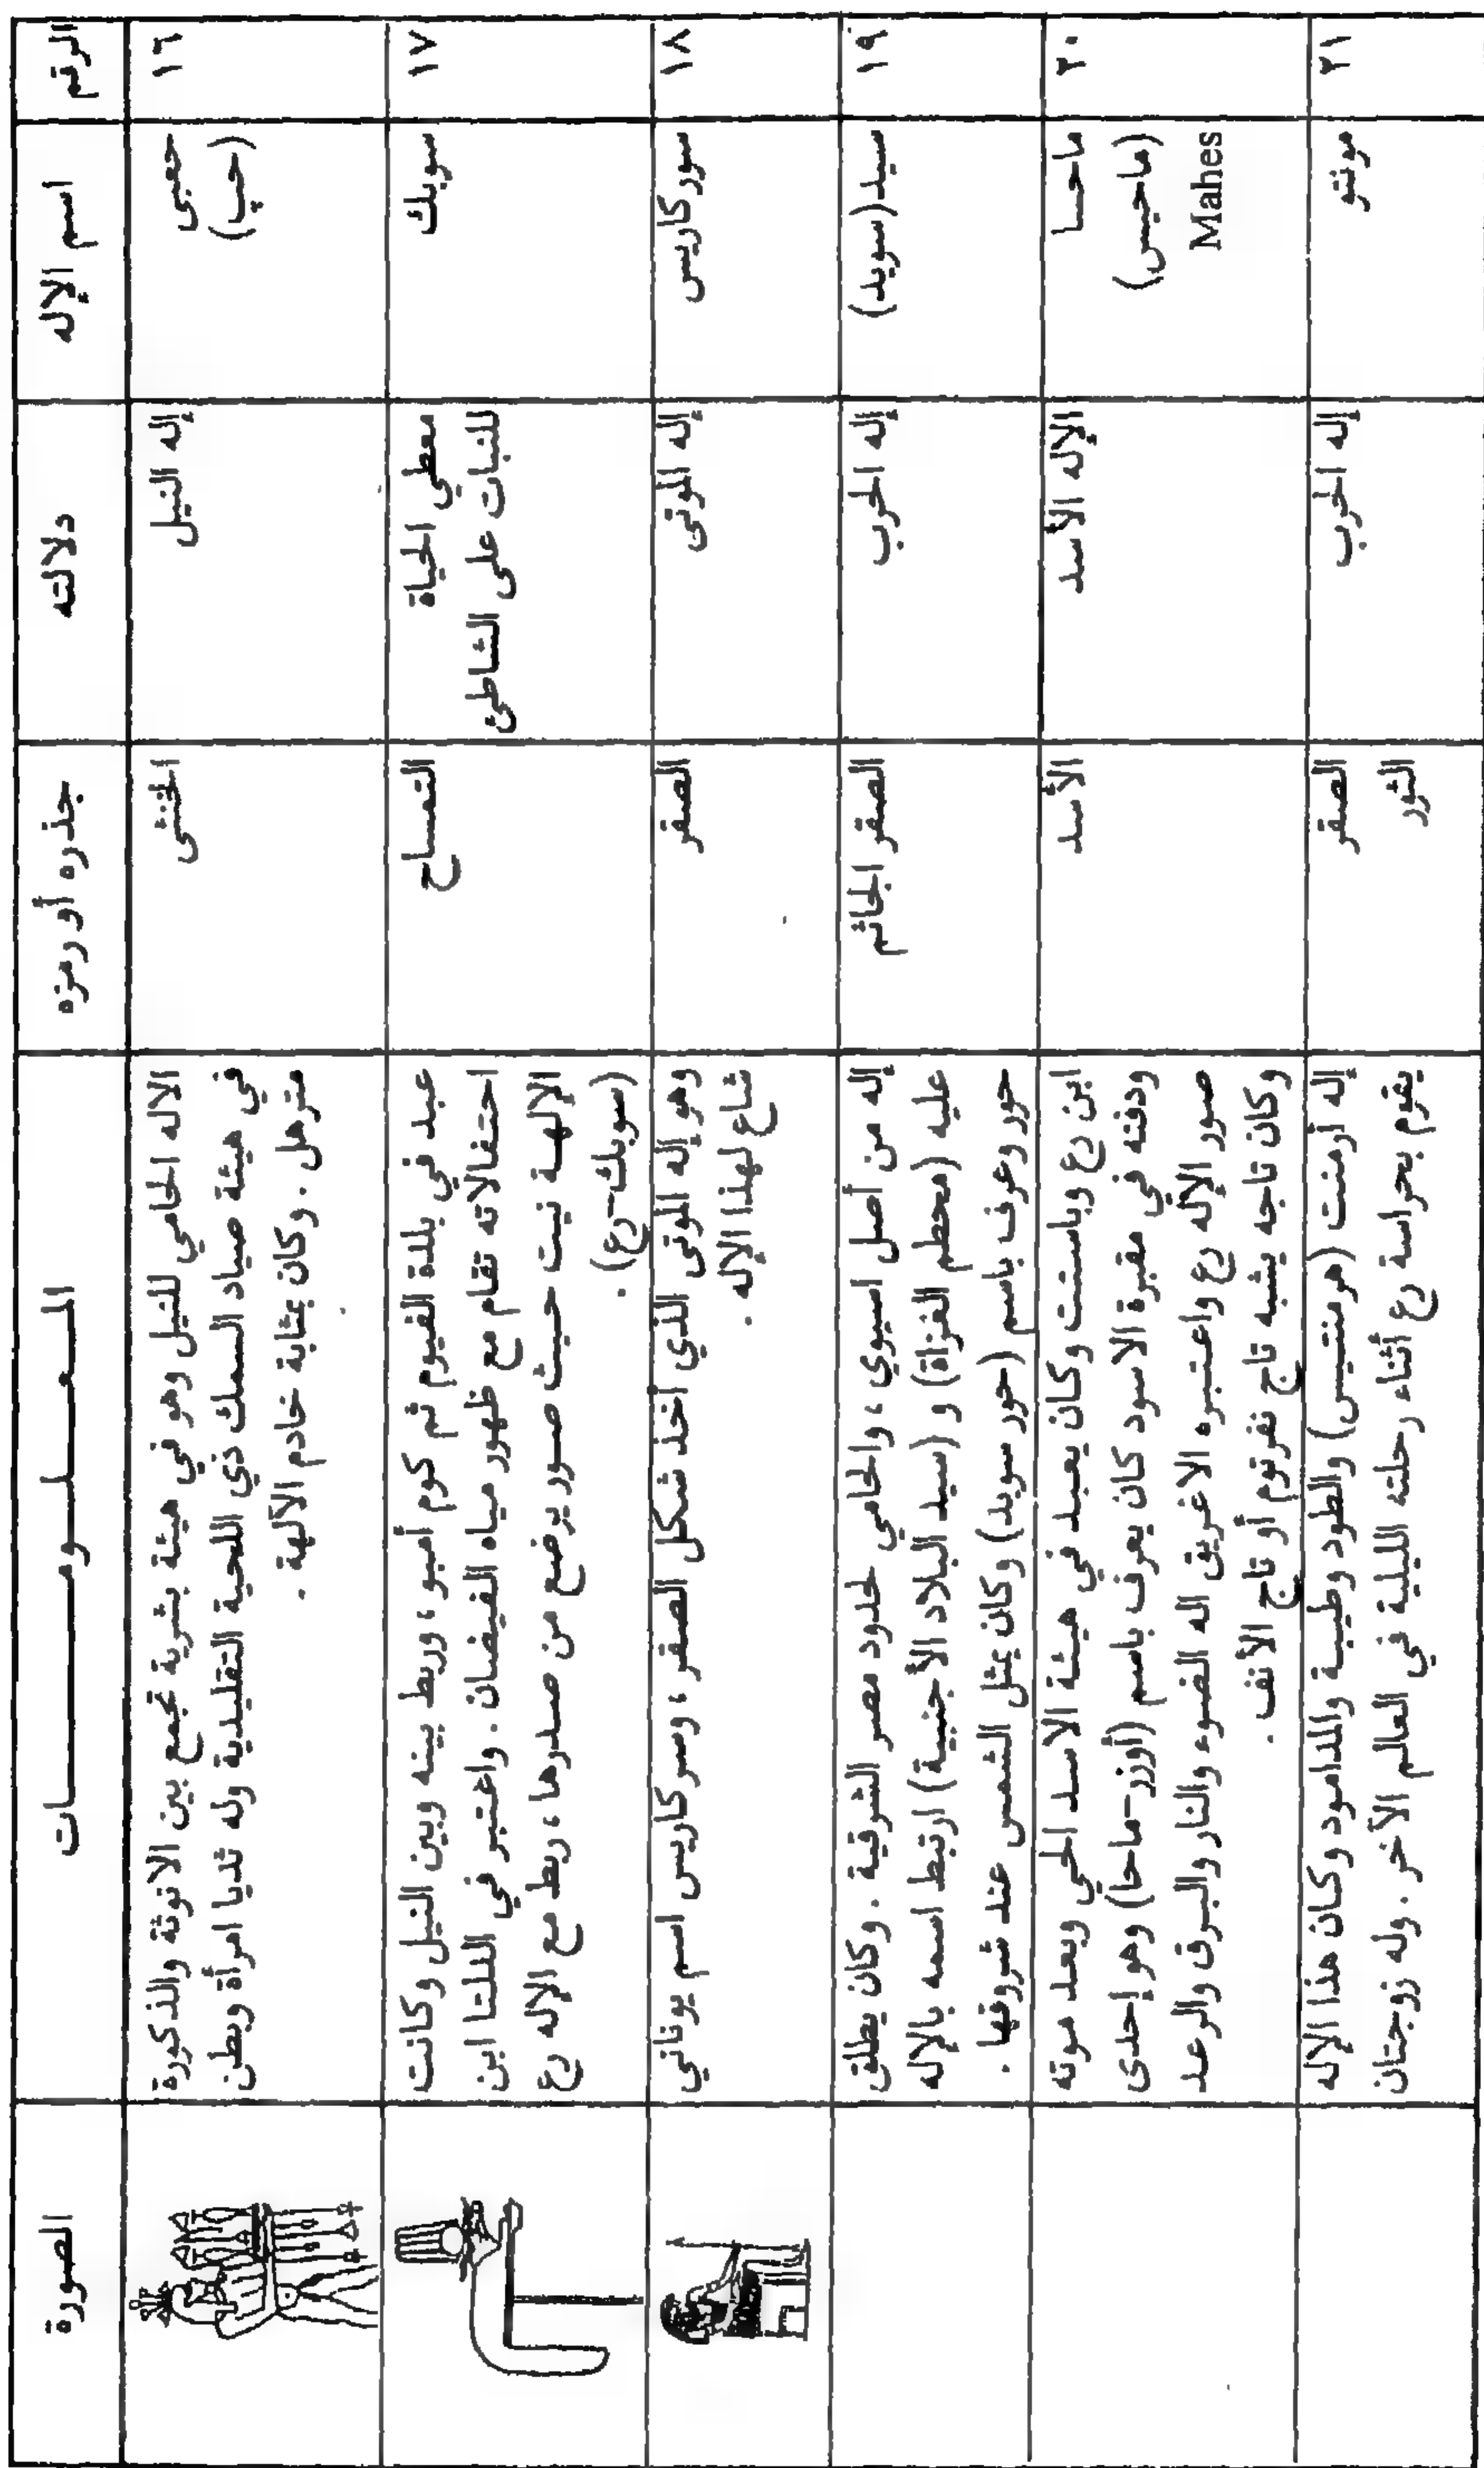 الرقم
اسم الإله
دلالته
جذره أو رمزه
المعلومات
الصورة
١٦
حعبى
(حب)
إله النيل
الخنثى
الاله الحامي للنيل وهو في هيئة بشرية تجمع بين الانوثة والذكورة
في هيئة صياد السمك ذي اللحية التقليدية وله ثديا امرأة وبطن
مترهل. وكان بمثابة خادم الآلهة.
١٧
سوبك
معطي الحياة
للنبات على الشاطئ
التمساح
عبد في بلدة الفيوم ثم كوم أمبو، وربط بينه وبين النيل وكانت
احتفالاته تقام مع ظهور مياه الفيضان. واعتبر في الدلتا ابن
الإلهة نيت حيث صور يرضع من صدرها، ربط مع الإله رع
(سوبك-رع).
١٨
سوركاريس
إله الموتى
الصقر
وهو إله الموتى الذي أخذ شكل الصقر، وسركاريس اسم يوناني
شاع لهذا الإله.
١٩
سيد(سويد)
إله الحرب
الصقر الجاثم
إله من أصل اسيوي، والحامي لحدود مصر الشرقية. وكان يطلق
عليه (محطم الغزاة) و (سيد البلاد الأجنبية) ارتبط اسمه بالإله
حور وعرف باسم (حور سويد) وكان يمثل الشمس عند شروقها.
٢٠
ماحسا
(ماحيس)
Mahes
الإله الأسد
الأسد
ابن رع وباستت وكان يعبد في هيئة الاسد الحي وبعد موته
ودفنه في مقبرة الاسود كان يعرف باسم (أوزر-ماحا) وهو إحدى
صور الإله رع واعتبره الاغريق اله الضوء والنار والبرق والرعد
وكان تاجه يشبه تاج نفرتوم أو تاج الأتف.
٢١
مونتو
إله الحرب
الصقر
الثور
إله أرمنت (هرمنتيس) والطود وطيبة والمدامود وكان هذا الإله
يقوم بحراسة رع أثناء رحلته الليلية في العالم الآخر. وله زوجتان